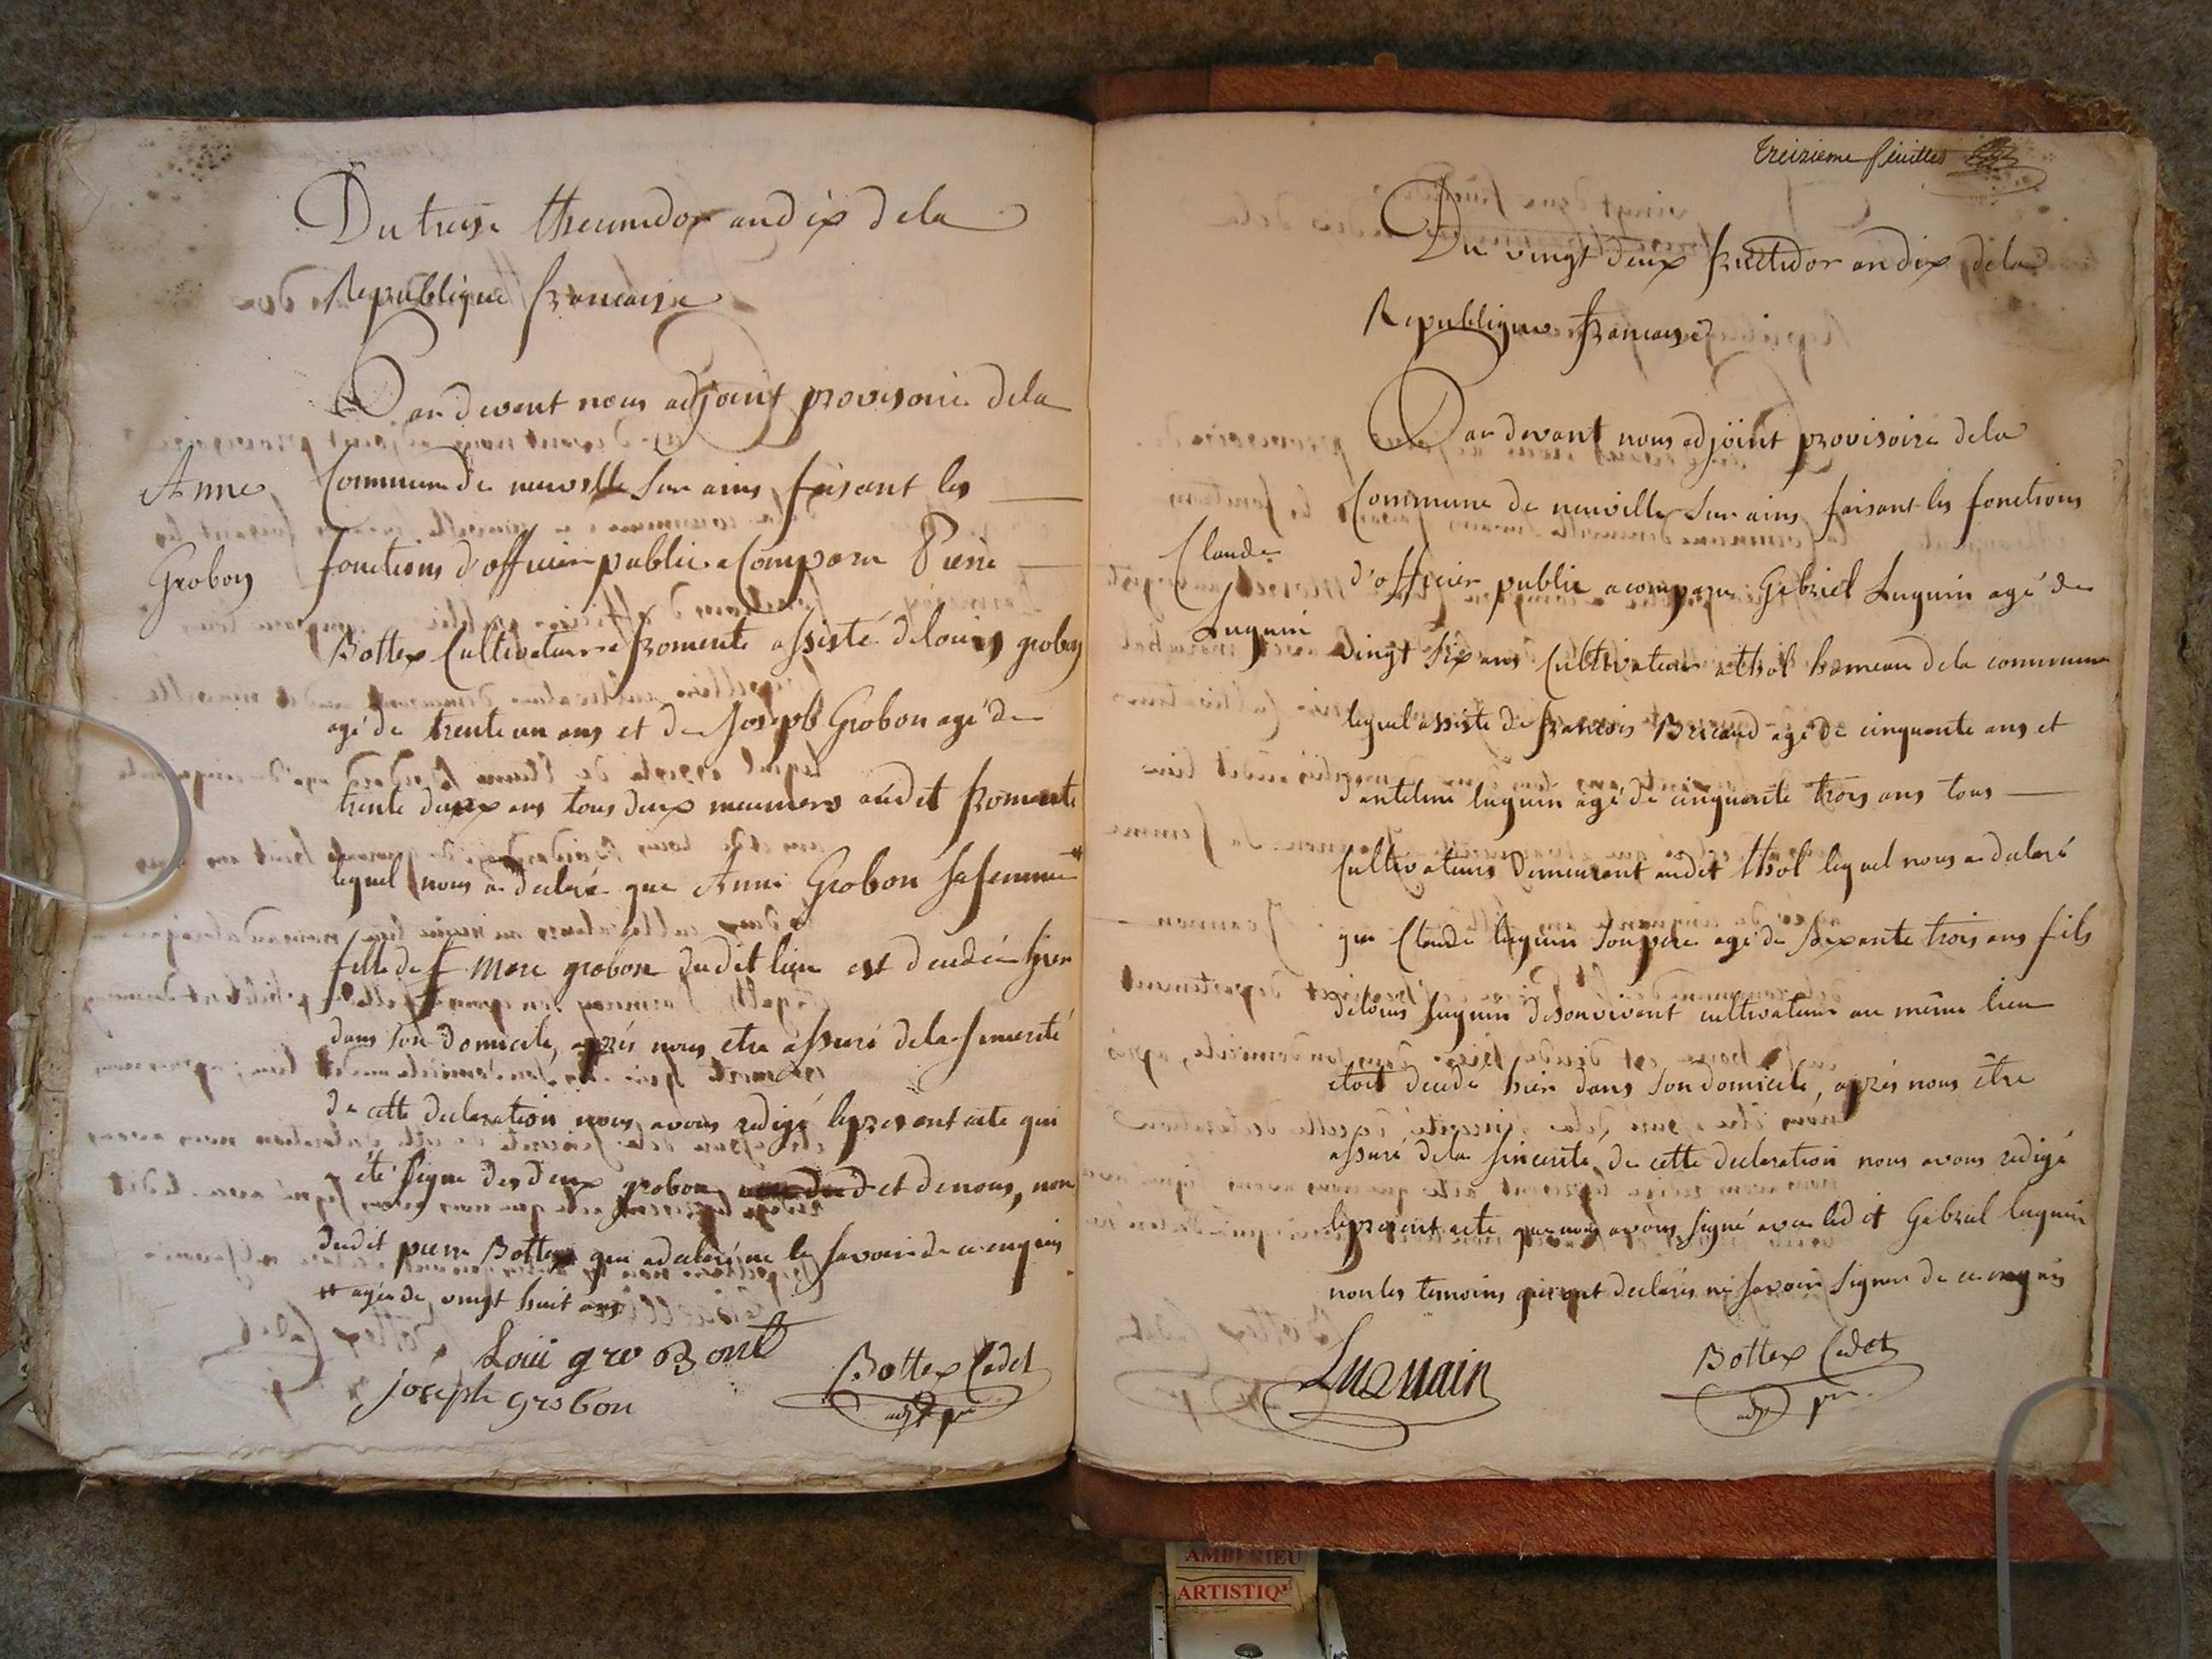 Du treise thermidor an dix de la
Republique francaise
Par devent nous adjoint provisoire de la
Anne
Grobon
Commune de neuville sur ains faisent les
fonctions d'officier public a Comparu Pierre
Bottex Cultivateur a fromente assisté de louis grobon
agé de trente un ans et de Joseph Grobon agé de
trente deux ans tous deux meuniers audit fromente
lequel nous a declaré que Anne Grobon sa femme #
fille de f Marc grobon dudit lieu est decedée hier
dans son Domicile, aprés nous etre assuré de la sincerité
de cette declaration nous avons redigé le present acte qui
a été signe des deux grobon et de nous, non
dudit pierre Bottex qui a declaré ne le savoir de ce enquis
# agée de vingt huit ans
Loui groBont
joseph grobon
Bottex Cadet
adjt pre
treizieme feuillet
Du vingt deux fructidor an dix de la
Republique francaise
Par devant nous adjoint provisoire de la
Claude
Luquin
Commune de neuville sur ains faisant les fonctions
d'officier public a comparu Gabriel Luquin agé de
vingt six ans Cultivateur a thol hameau de la commune
lequel assisté de francois Bricaud agé de cinquante ans et
d'antelme luquin agé de cinquante trois ans tous
Cultivateurs Demeurant audit thol lequel nous a declaré
que Claude luquin son pere agé de soixante trois ans fils
de louis luquin de son vivent cultivateur au même lieu
etoit decedé hier dans son domicile, aprés nous être
assuré de la sincerité de cette declaration nous avons redigé
le present acte que nous avons signé avec ledit Gabriel luquin
non les temoins qui ont declarés ne savoir signer de ce enquis
Luquain
Bottex Cadet
adjt pre
AMBERIEU
ARTISTIQ